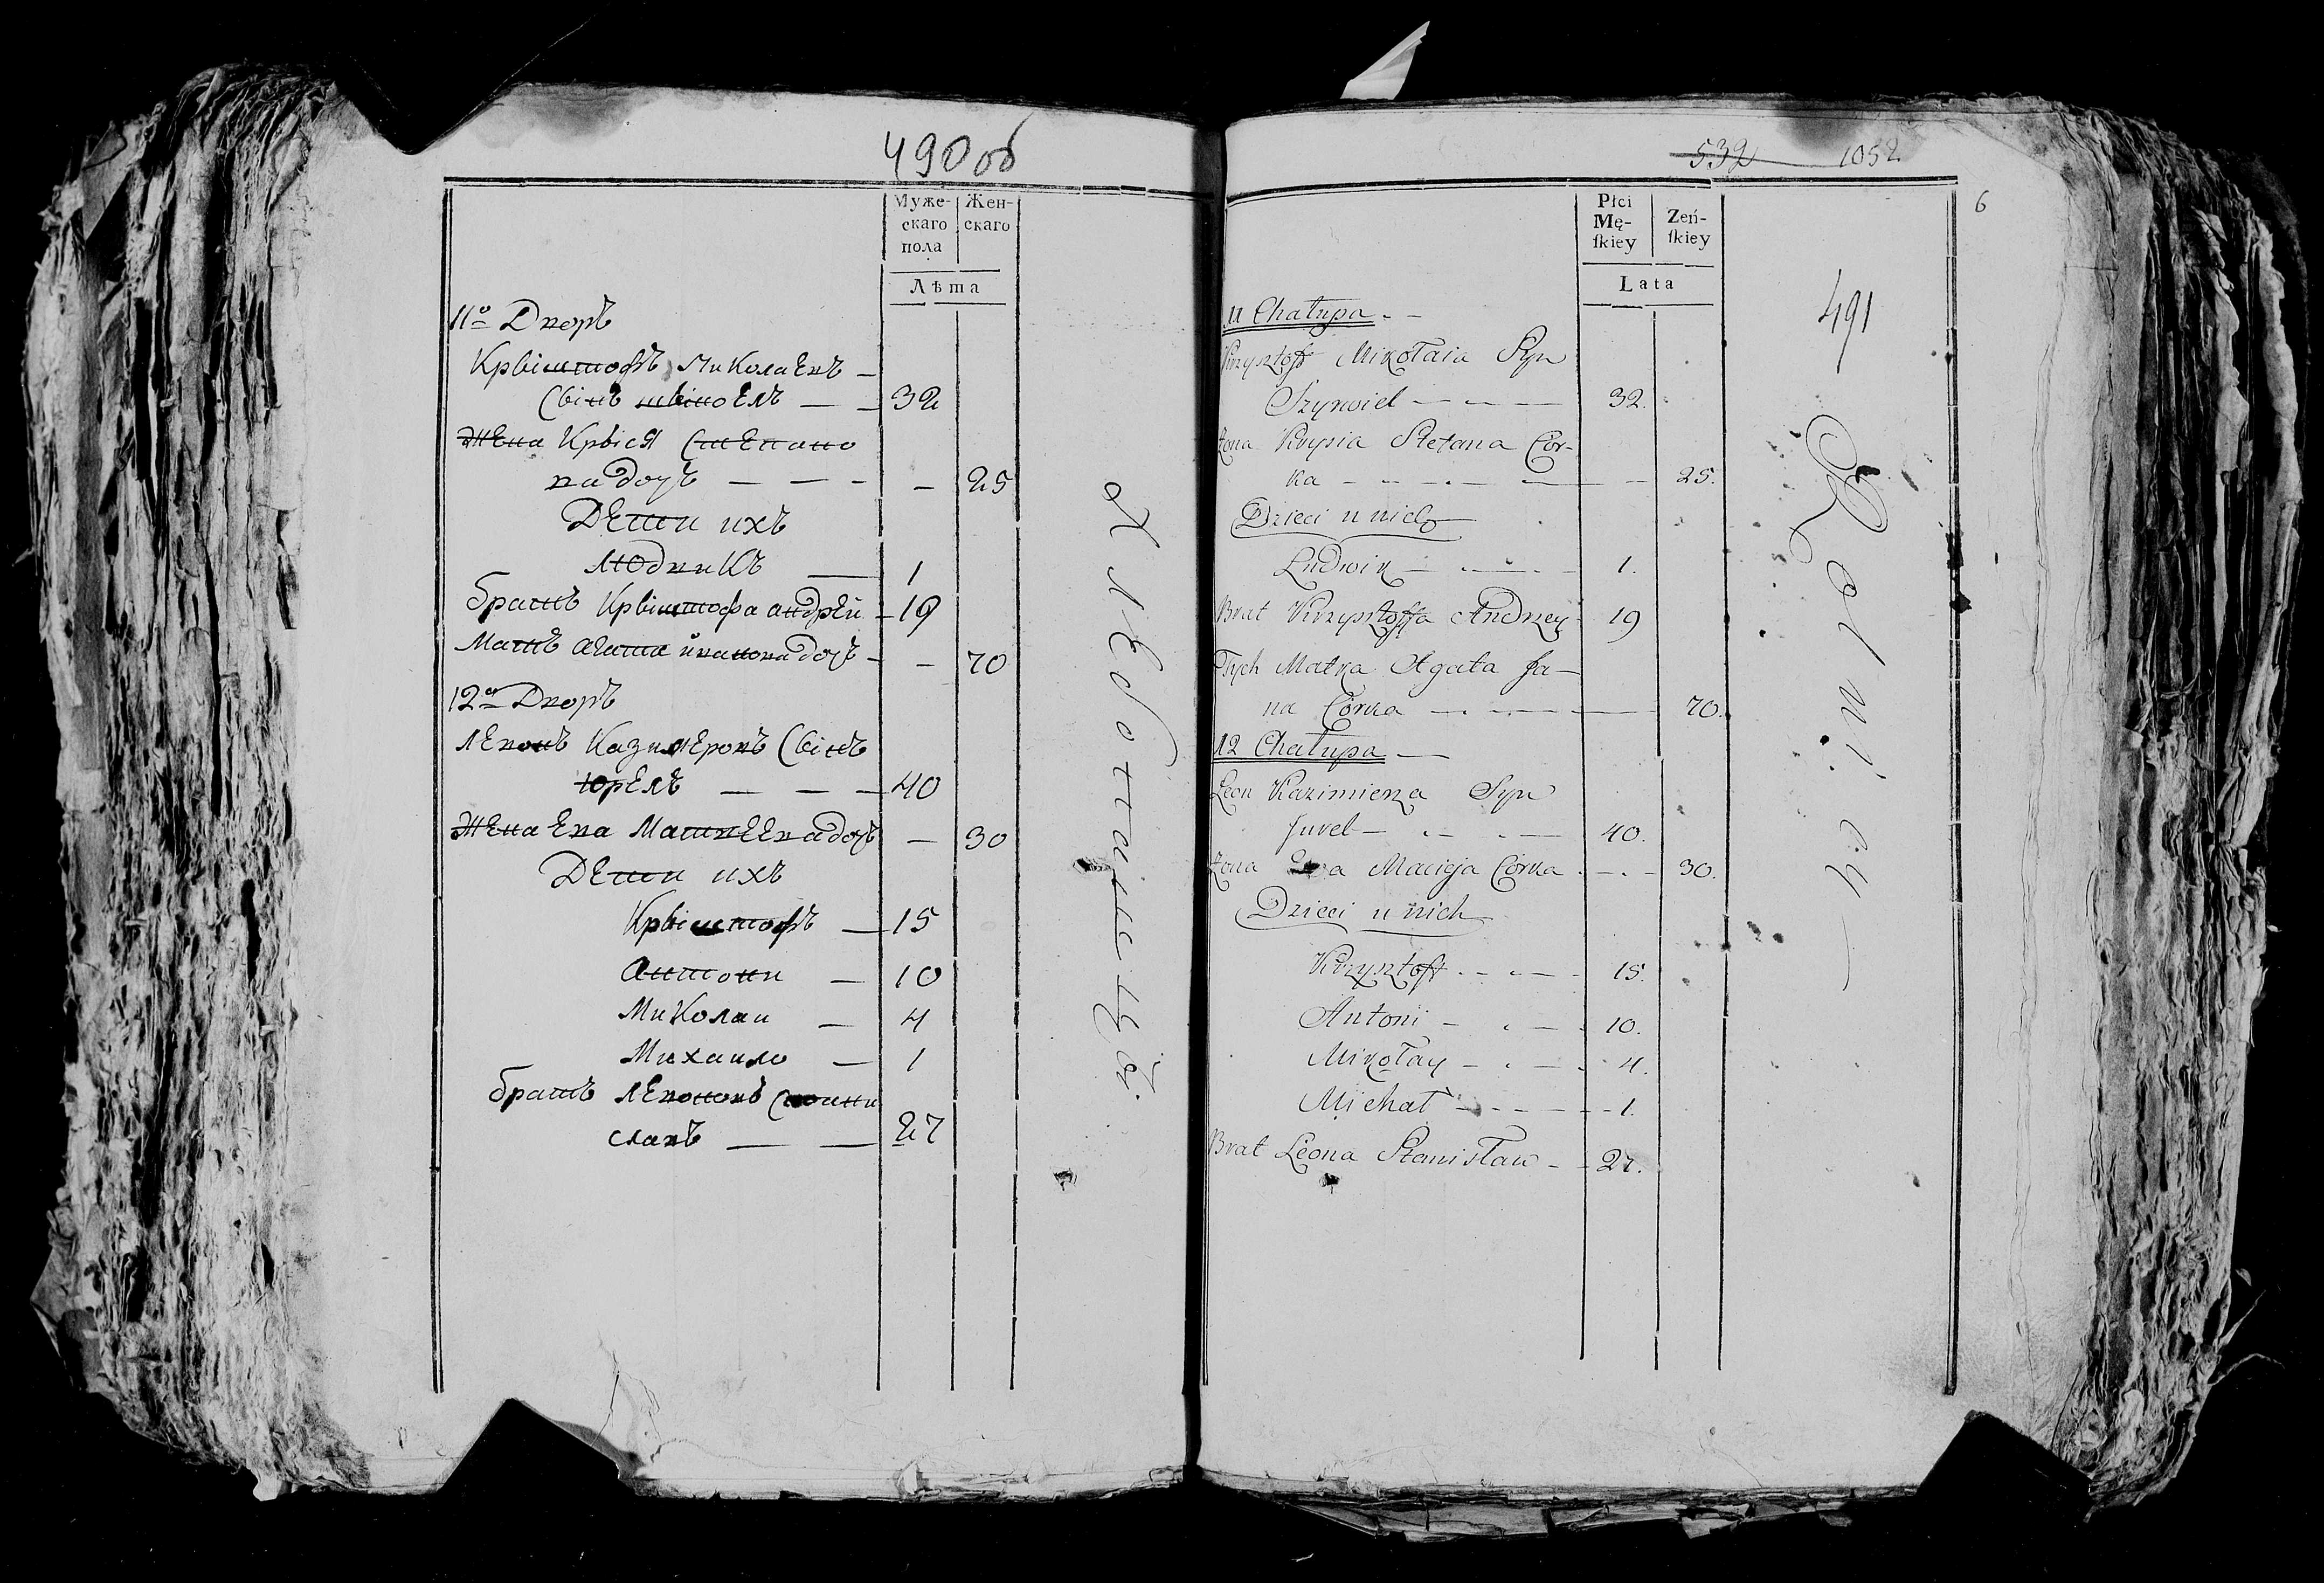 490 об
Муже-
скаго
пола
Жен-
скаго
Лѣта
11º Дворъ
Крыштофъ Миколаевъ —
Сынъ шывоелъ — — 32
Жена Крыся Степано
ва дочь — — — — 25
Дети ихъ
Людвикъ — 1
братъ Крыштофа андрей — 19
Мать агата иванова дочь — — 70
12º Дворъ
левонъ Казимеровъ Сынъ
юрелъ — — — 40
Жена Ева Матвеева дочь — 30
Дети ихъ
Крыштофъ — 15
антони — 10
Миколаи — 4
Михаило — 1
братъ левоновъ Стани
славъ — — 27
хлебопашецъ
532 1052
6
Płci
Mę-
ſkiey
Zeń-
ſkiey
Lata
491
11 Chałupa. —
Krzysztoff Mikołaia Syn
Szyrwiel — — — 32.
Zona Krysia Stefana Cor-
ka — — — — — 25.
Dzieci u nich
Ludwik — — — 1.
Brat Krzysztoffa Andrzey 19
Tych Matka Agata Ja-
na Córka — — — 70.
12 Chałupa —
Leon Kazimierza Syn
Jurel — — — 40.
Zona Ewa Macieja Córka — 30.
Dzieci u nich
Krzysztoff — — 15.
Antoni — — 10.
Mikołay — — 4.
Michał — — — 1.
Brat Leona Stanisław — 27.